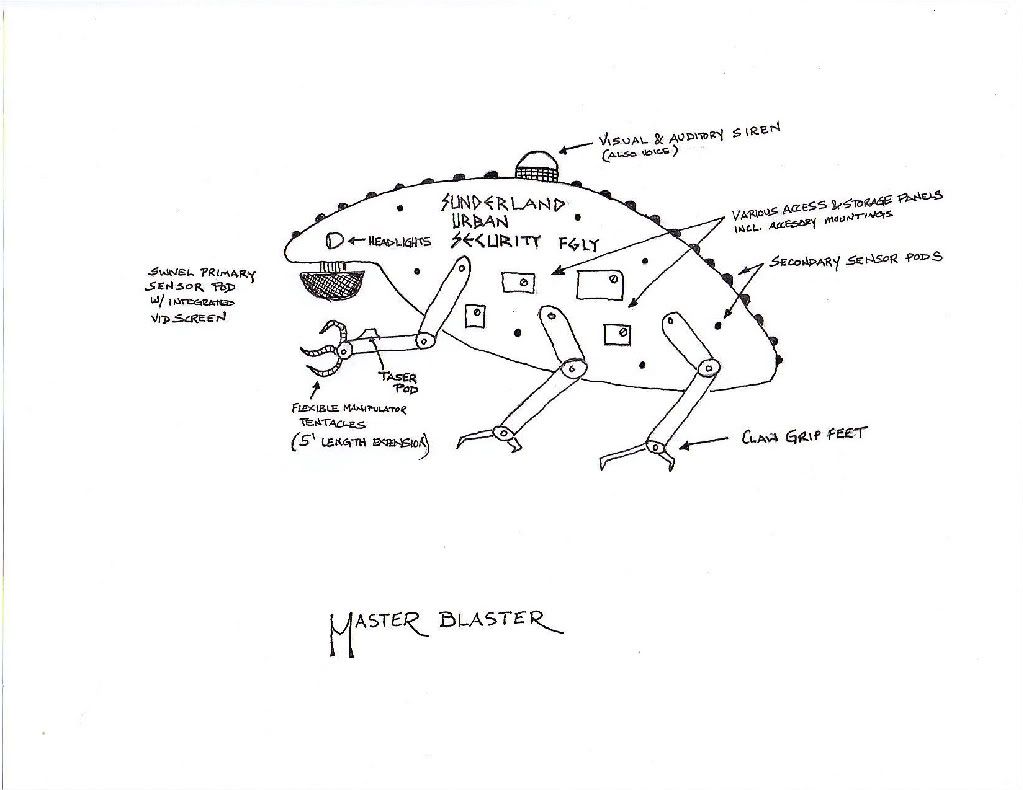 VISUAL & AUDITORY SIREN
(ALSO VOICE)
SUNDERLAND
URBAN
SECURITY FGLY
HEADLIGHTS
VARIOUS ACCESS & STORAGE PANELS
INCL. ACCESSORY MOUNTINGS
SECONDARY SENSOR PODS
SWIVEL PRIMARY
SENSOR POD
W/ INTEGRATED
VID SCREEN
TASER
POD
FLEXIBLE MANIPULATOR
TENTACLES
(5' LENGTH EXTENSION)
CLAW GRIP FEET
MASTER BLASTER